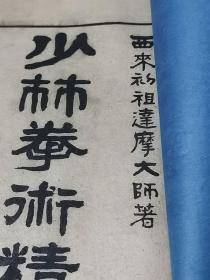 西來初祖達摩大師著
少林拳術精